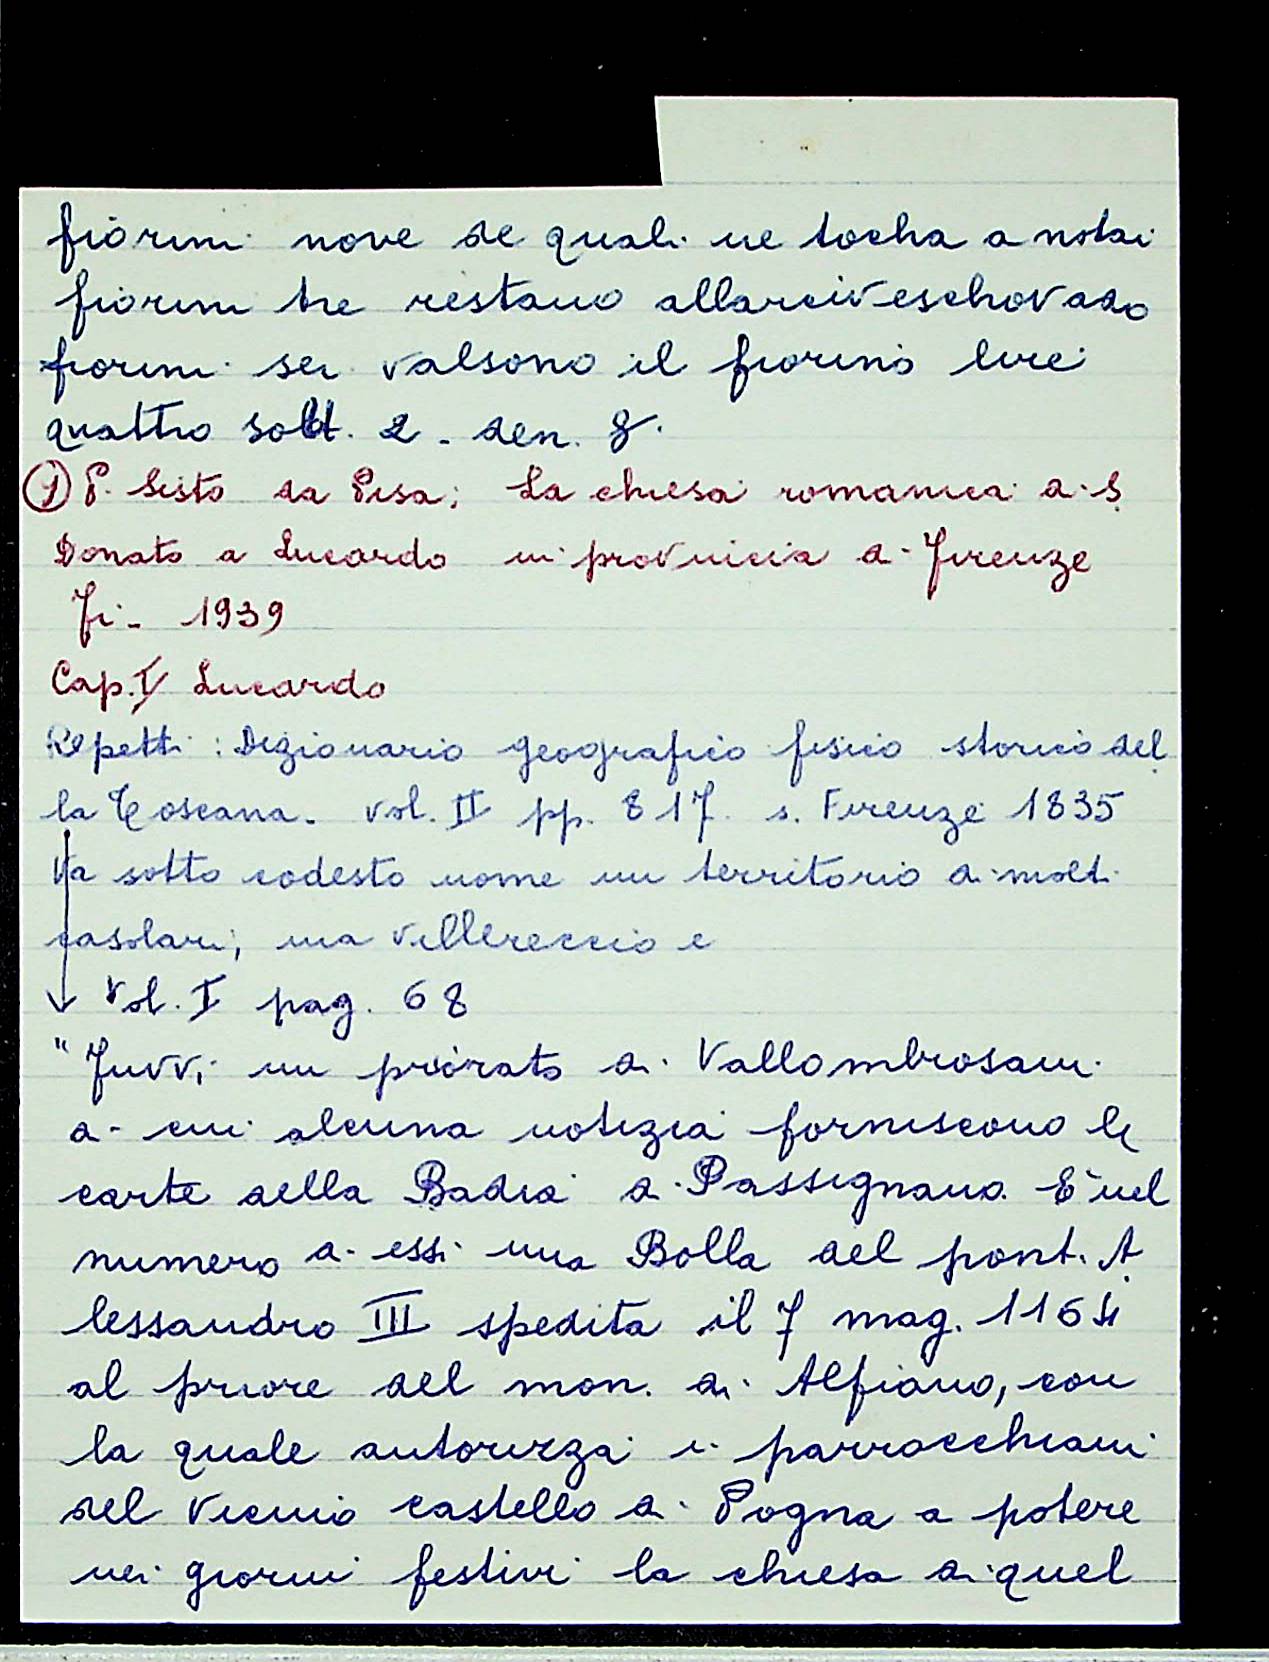 fiorini nove de quali ne tocha a notai
fiorini tre restano allarciveschovado
fiorini sei valsono il fiorino lire
quattro sold. 2 - den. 8.
① P. Sisto da Pisa; La chiesa romanica di S.
Donato a Lucardo in provincia di Firenze
Fi - 1939
Cap. I Lucardo
Repetti: Dizionario geografico fisico storico del
la Toscana. vol. II pp. 817. s. Firenze 1835
Va sotto codesto nome un territorio di molti
casolari; ma villereccio e
Vol. I pag. 68
"Fuvvi un priorato di Vallombrosani
di cui alcuna notizia forniscono le
carte della Badia di Passignano. È nel
numero di essi una Bolla del pont. A
lessandro III spedita il 7 mag. 1164
al priore del mon. di Alfiano, con
la quale autorizza i parrocchiani
del vicino castello di Pogna a potere
nei giorni festivi la chiesa di quel